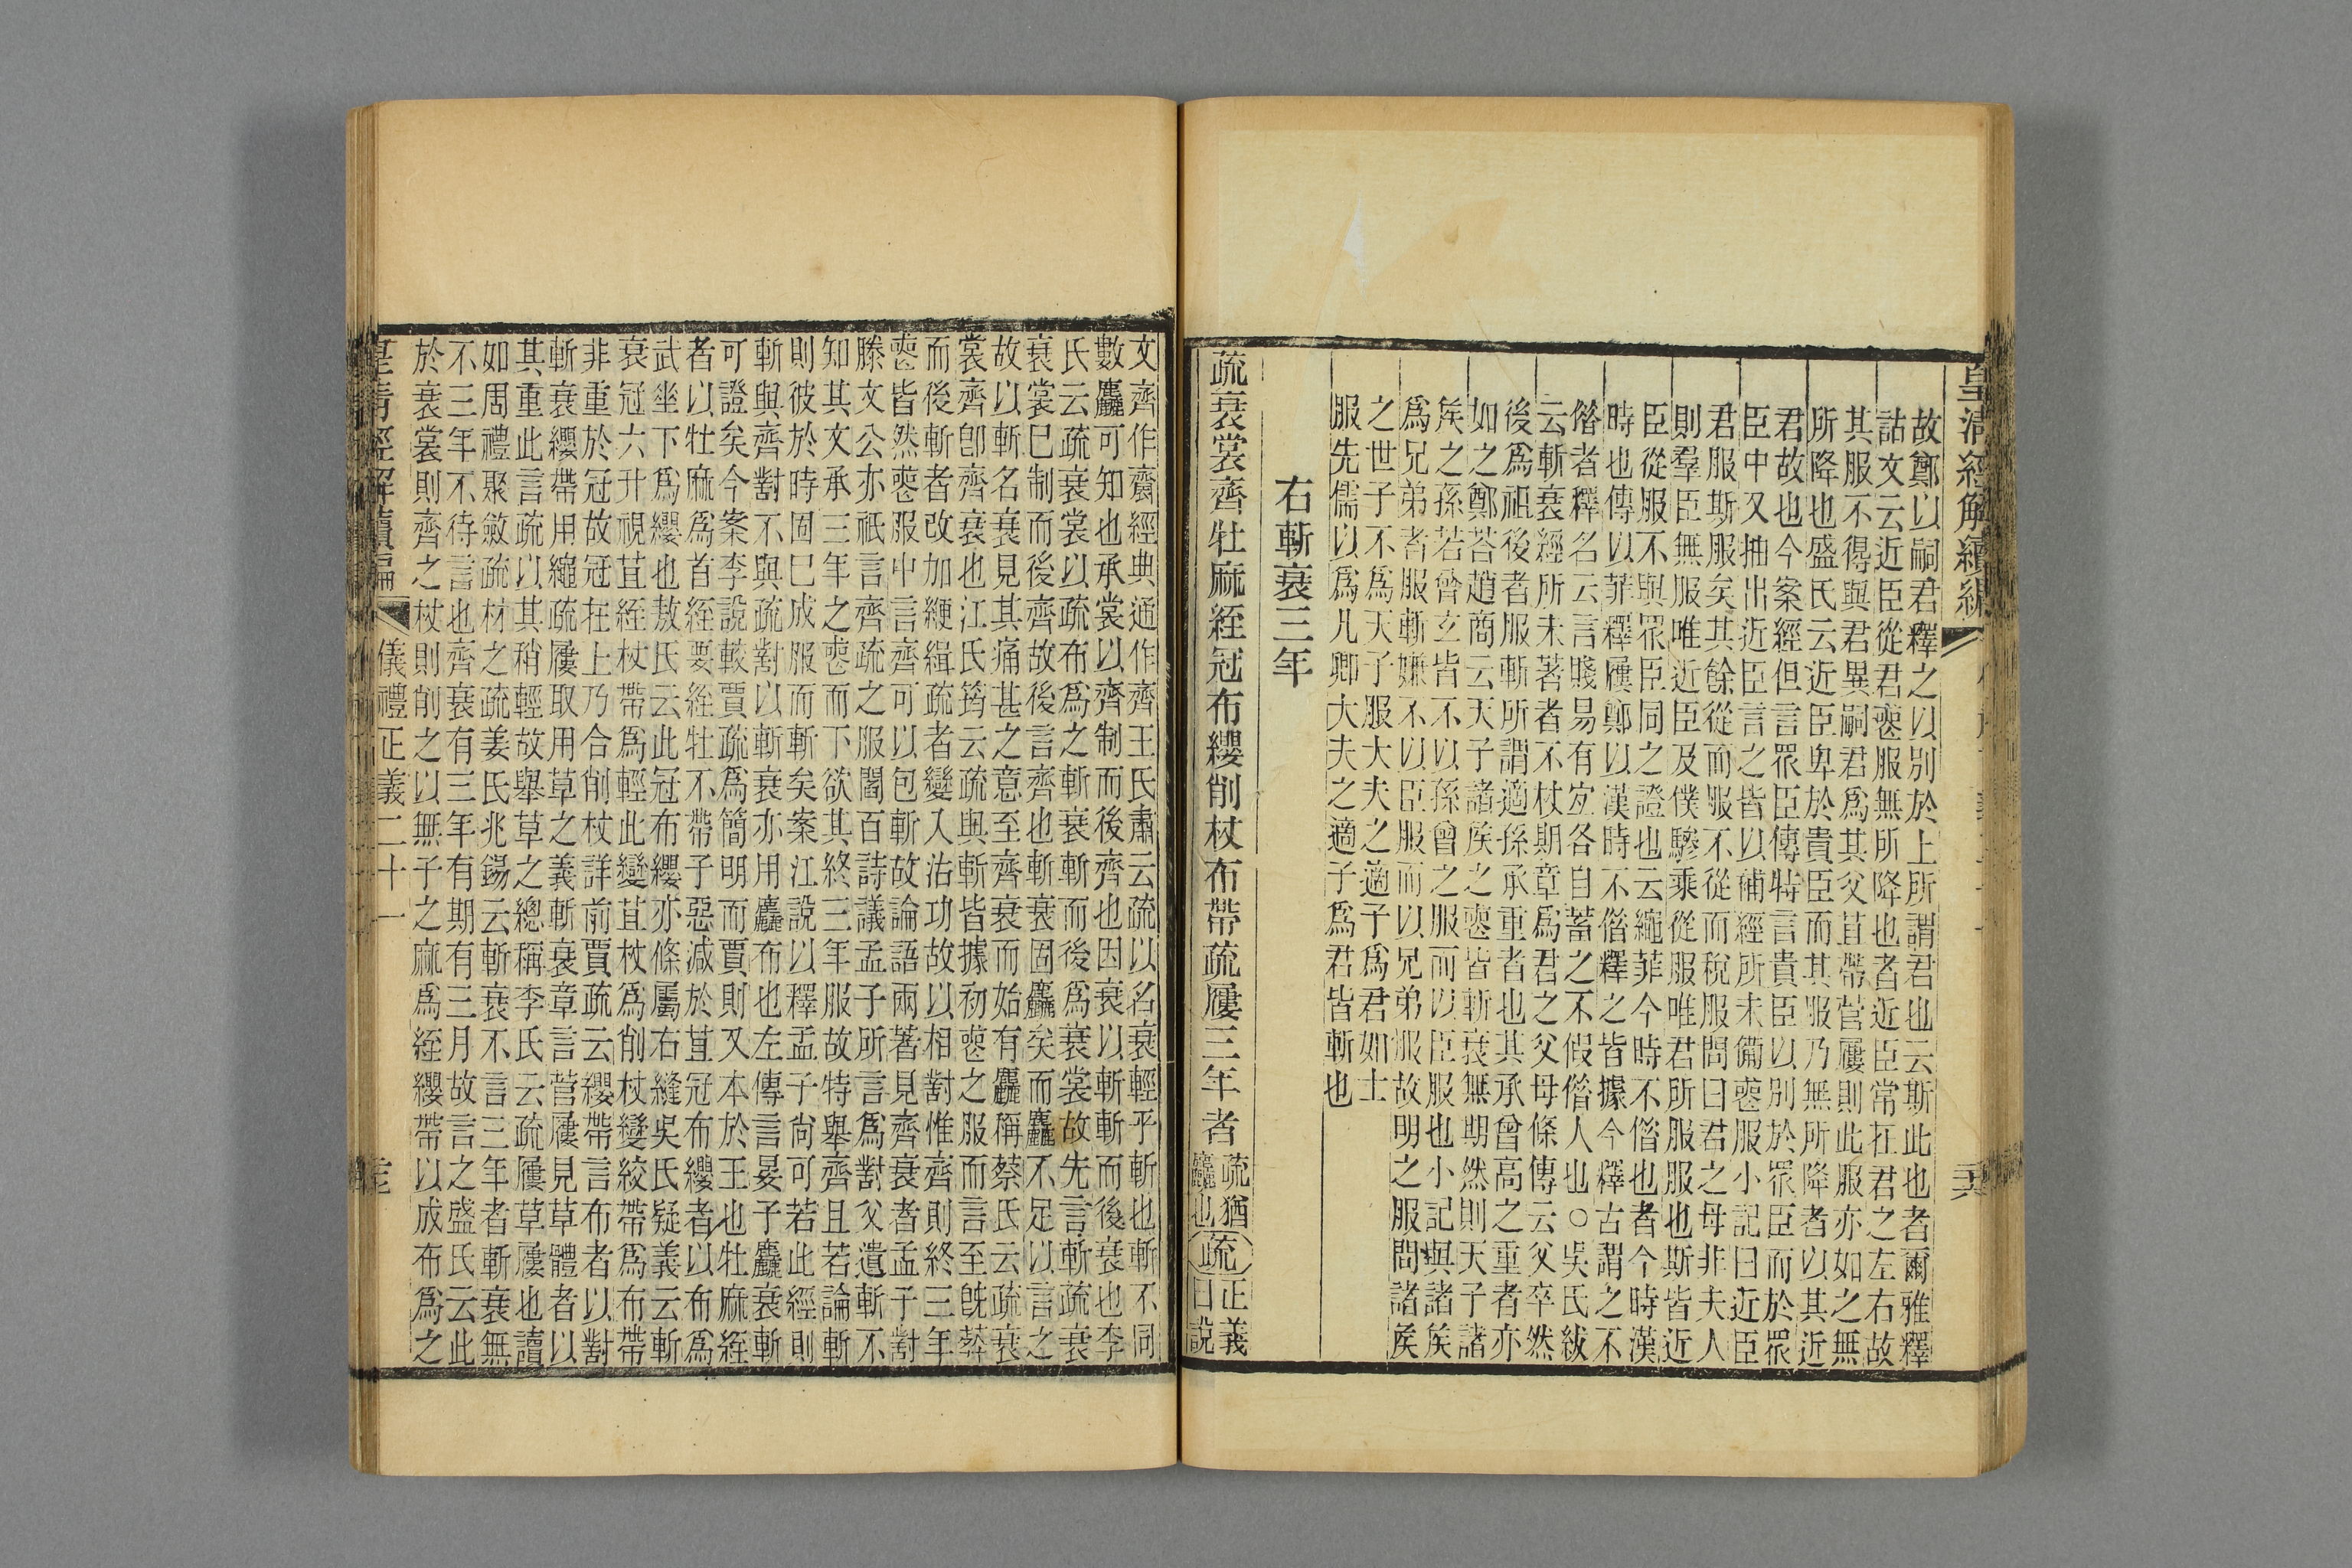 皇清經解續編
故鄭以嗣君釋之以別於上所謂君也云斯此也者爾雅釋
詁文云近臣從君喪服無所降也者近臣常在君之左右故
其服不得與君異嗣君爲其父苴帶菅屨則此服亦如之無
所降也盛氏云近臣卑於貴臣而其服乃無所降者以其近
君故也今案經但言眾臣傳特言貴臣以別於眾臣而於眾
臣中又抽出近臣言之皆以補經所未備喪服小記曰近臣
君服斯服矣其餘從而服不從而稅服問曰君之母非夫人
則羣臣無服唯近臣及僕驂乘從服唯君所服服也斯皆近
臣從服不與眾臣同之證也云繩菲今時不借也者今時漢
時也傳以菲釋屨鄭以漢時不借釋之皆據今釋古謂之不
借者釋名云言賤易有宜各自蓄之不假借人也○吳氏紱
云斬衰經所未著者不杖期章爲君之父母條傳云父卒然
後爲祖後者服斬所謂適孫承重者也其承曾高之重者亦
如之鄭荅趙商云天子諸矦之喪皆斬衰無期然則天子諸
矦之孫若曾玄皆不以孫曾之服而以臣服也小記與諸矦
爲兄弟者服斬嫌不以臣服而以兄弟服故明之服問諸矦
之世子不爲天子服大夫之適子爲君如士
服先儒以爲凡卿大夫之適子爲君皆斬也
右斬衰三年
疏衰裳齊牡麻絰冠布纓削杖布帶疏屨三年者疏猶麤也疏正義曰說
文齊作齋經典通作齊王氏肅云疏以名衰輕乎斬也斬不同
數麤可知也承裳以齊制而後齊也因衰以斬斬而後衰也李
氏云疏衰裳以疏布爲之斬衰斬而後爲衰裳故先言斬疏衰
衰裳已制而後齊故後言齊也斬衰固麤矣而麤不足以言之
故以斬名衰見其痛甚之意至齊衰而始有麤稱蔡氏云疏衰
裳齊卽齊衰也江氏筠云疏與斬皆據初喪之服而言至旣葬
而後斬者改加緶緝疏者變入沽功故以相對惟齊則終三年
喪皆然喪服中言齊可以包斬故論語兩著見齊衰者孟子對
滕文公亦祇言齊疏之服閻百詩議孟子所言爲對父遺斬不
知其文承三年之喪而下欲其終三年服故特舉齊且若論斬
則彼於時固已成服而斬矣案江說以釋孟子尙可若此經則
斬與齊對不與疏對以斬衰亦用麤布也左傳言晏子麤衰斬
可證矣今案李說較賈疏爲簡明而賈則又本於王也牡麻絰
者以牡麻爲首絰要絰牡不帶子惡減於苴冠布纓者以布爲
武坐下爲纓也敖氏云此冠布纓亦條屬右縫吳氏疑義云斬
衰冠六升視苴絰杖帶爲輕此變苴杖爲削杖變絞帶爲布帶
非重於冠故冠在上乃合削杖詳前賈疏云纓帶言布者以對
斬衰纓帶用繩疏屨取用草之義斬衰章言菅屨見草體者以
其重此言疏以其稍輕故舉草之總稱李氏云疏屨草屨也讀
如周禮聚斂疏材之疏姜氏兆錫云斬衰不言三年者斬衰無
不三年不待言也齊衰有三年有期有三月故言之盛氏云此
於衰裳則齊之杖則削之以無子之麻爲絰纓帶以成布爲之
皇清經解續編　儀禮正義二十一